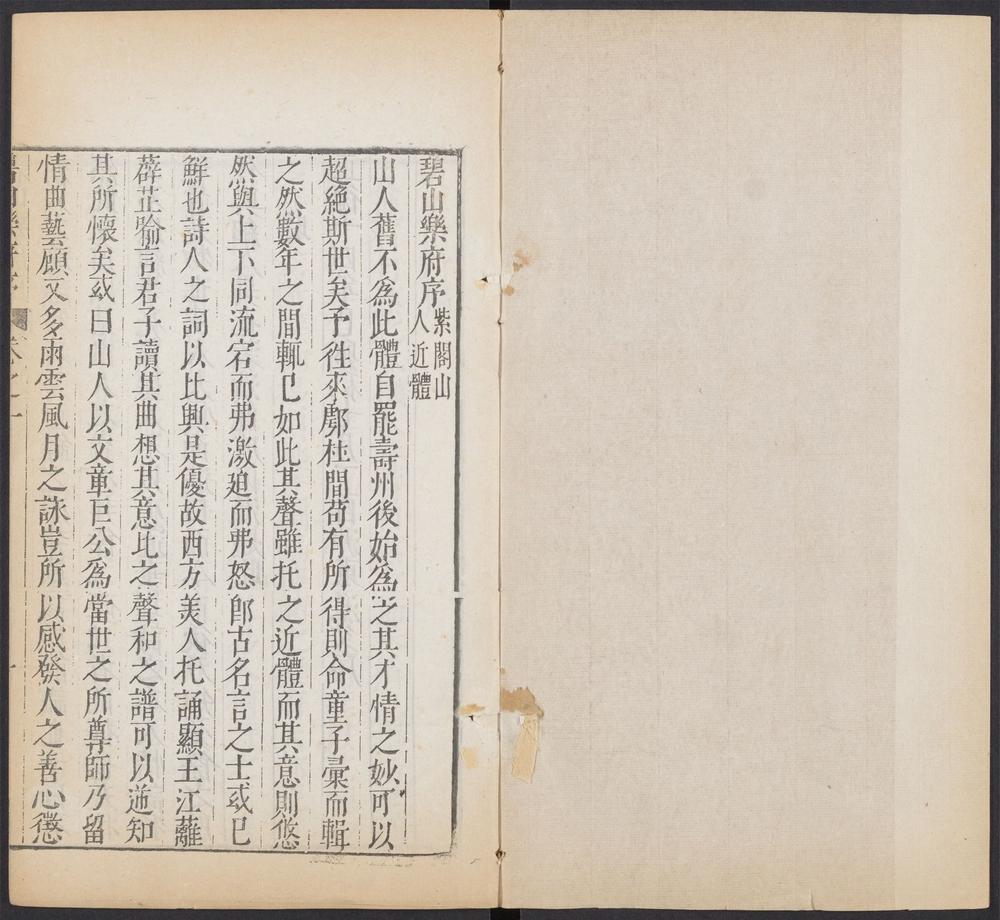 碧山樂府序 紫閣山人近體
山人舊不為此體自罷壽州後始為之其才情之妙可以
超絕斯世矣予徃來鄠杜間苟有所得則命童子彙而輯
之然數年之間輒已如此其聲雖托之近體而其意則悠
然與上下同流宕而弗激廹而弗怒即古名言之士或已
鮮也詩人之詞以比興是優故西方美人托誦顯王江蘺
薜芷喻言君子讀其曲想其意比之聲和之譜可以逆知
其所懷矣或曰山人以文章巨公為當世之所尊師乃留
情曲藝顧又多雨雲風月之詠豈所以感發人之善心懲
碧山樂府序 卷之一 一